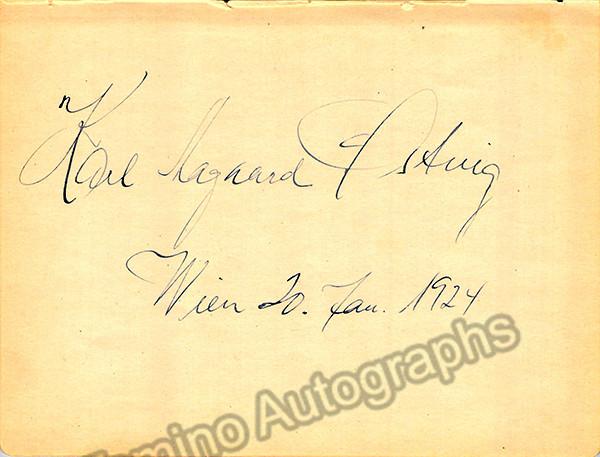 Karl Aagaard Østvig
Wien 20. Jan. 1924
Tamino Autographs